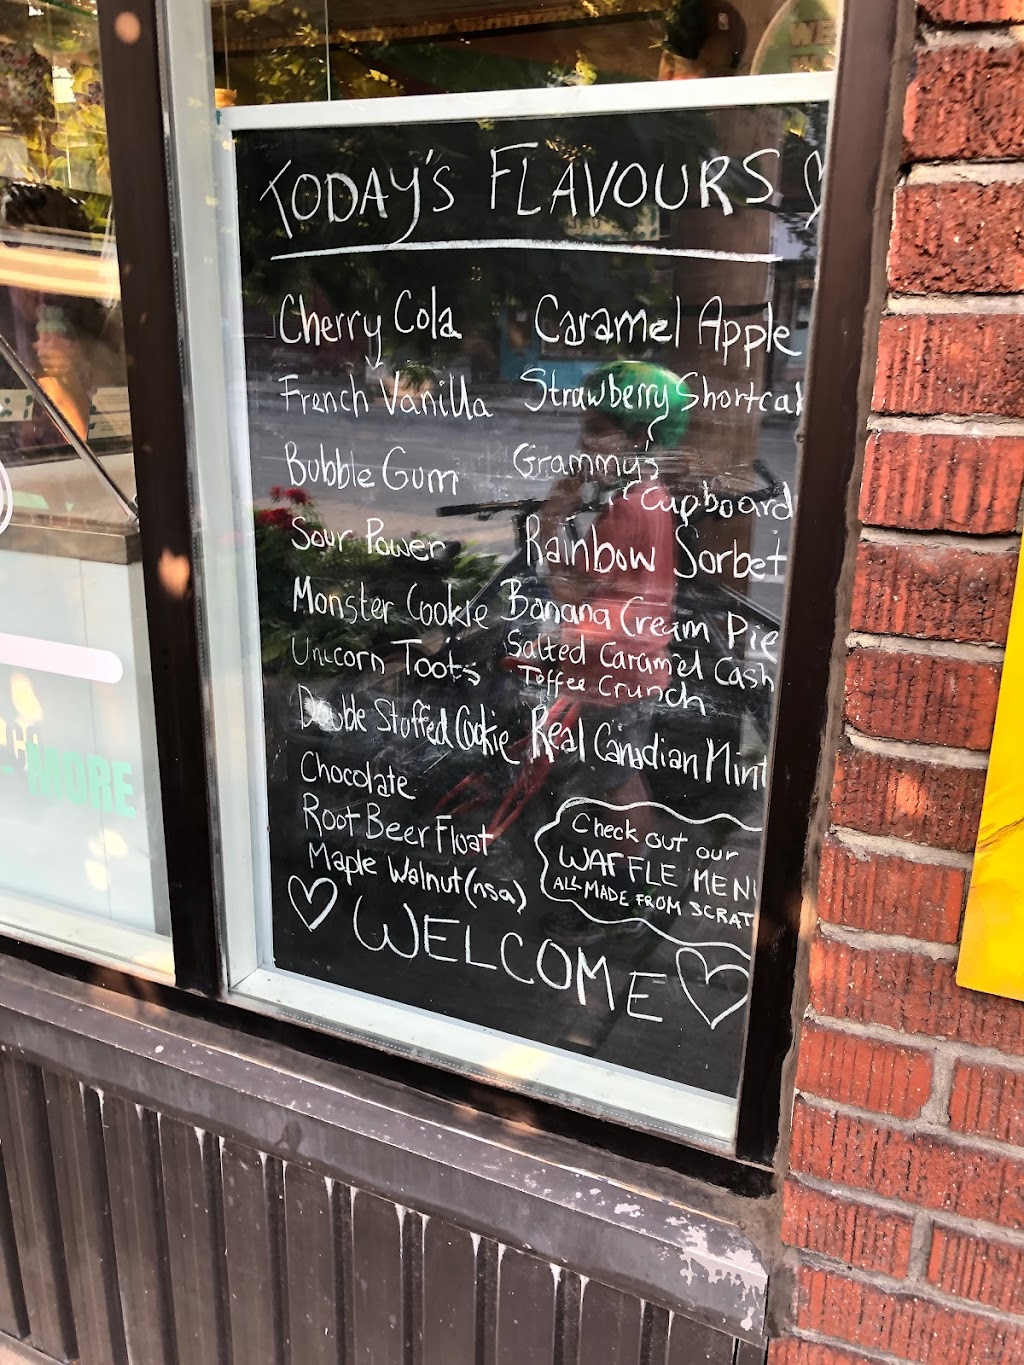 TODAY'S FLAVOURS
Cherry Cola
French Vanilla
Bubble Gum
Sour Power
Monster Cookie
Unicorn Toots
Double Stuffed Cookie
Chocolate
Root Beer Float
Maple Walnut (nsa)
Caramel Apple
Strawberry Shortcak
Grammy's
Cupboard
Rainbow Sorbet
Banana Cream Pie
Salted Caramel Cash
Toffee Crunch
Real Canadian Mint
Check out our
WAFFLE MENU
ALL MADE FROM SCRAT
WELCOME
MORE
WE